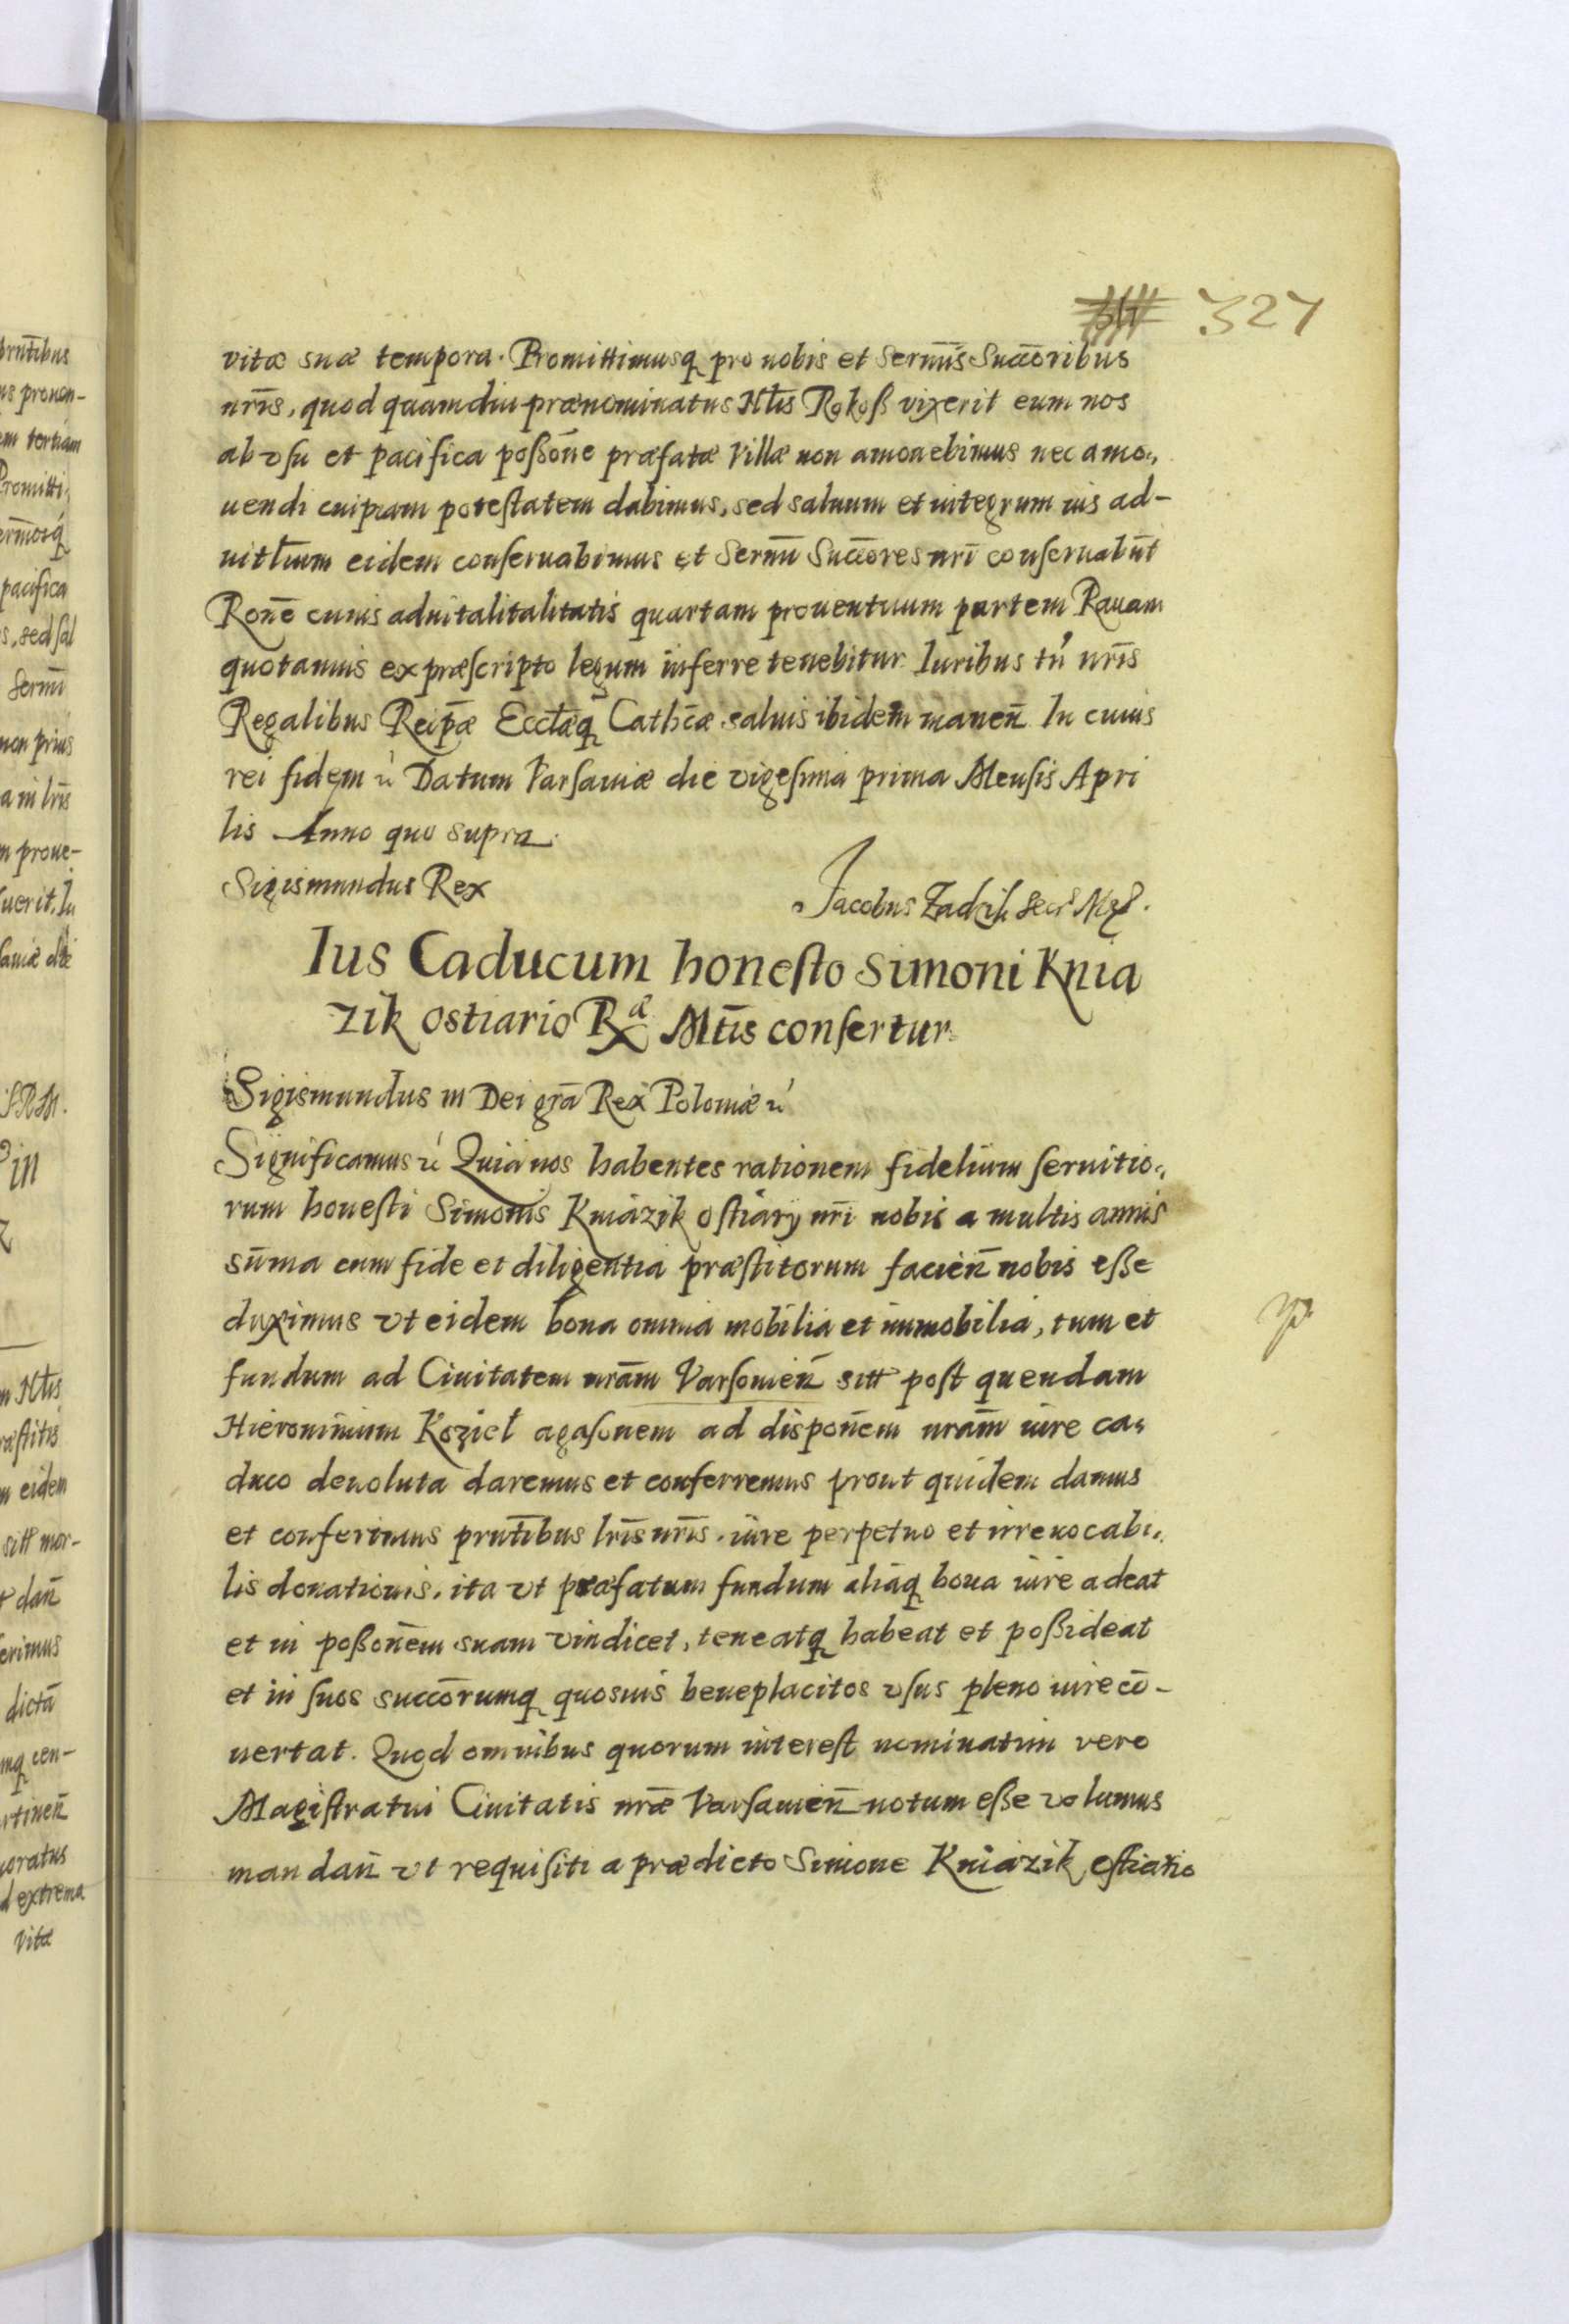 327
vitæ suæ tempora. Promittimusq pro nobis et Sermīs Succoribus
nrīs, quod quamdiu prænominatus Nłis Rokoß vixerit eum nos
ab vsu et pacifica poßōne præfatæ Villæ non amouebimus nec amo„
uendi cuipiam potestatem dabimus, sed saluum et integrum ius ad-
uitłium eidem conseruabimus et Sermī Succōres nrī conseruabūt
Ronē cuius aduitalitalitatis quartam prouentuum partem Rauam
quotannis ex præscripto legum inferre tenebitur. Iuribus tn̄ nrīs
Regalibus Reipæ Ecclæq Cathcæ saluis ibidem manen̄ In cuius
rei fidem ꝛc Datum Varsauiæ die vigesima prima Mensis Apri
lis Anno quo supra.
Sigismundus Rex
Jacobus Zadzik Secr
Ius Caducum honesto Simoni Knia
zik ostiario Rx æ Mtis confertur.
Sigismundus III Dei grā Rex Poloniæ ꝛc
Significamus ꝛc Quia nos habentes rationem fidelium seruitio„
rum honesti Simonis Kniazik ostiarij nrī nobis a multis annis
sūma cum fide et diligentia præstitorum facien̄ nobis eße
duximus vt eidem bona omnia mobilia et immobilia, tum et
fundum ad Ciuitatem nrām Varsouien̄ sitt post quendam
Hieronimum Kozieł agasonem ad disponēm nrām iure ca„
duco deuoluta daremus et conferremus prout quidem damus
et conferimus prntībus lrīs nrīs. iure perpetuo et irreuocabi„
lis donationis. ita vt præfatum fundum aliaq bona iure adeat
et in poßonēm suam vindicet, teneatq habeat et poßideat
et in suos succōrumq quosuis beneplacitos vsus pleno iure cō-
uertat. Quod omnibus quorum interest nominatim vero
Magistratui Ciuitatis nræ Varsauien̄ notum eße volumus
mandan̄ vt requisiti a prædicto Simone Kniazik ostiario